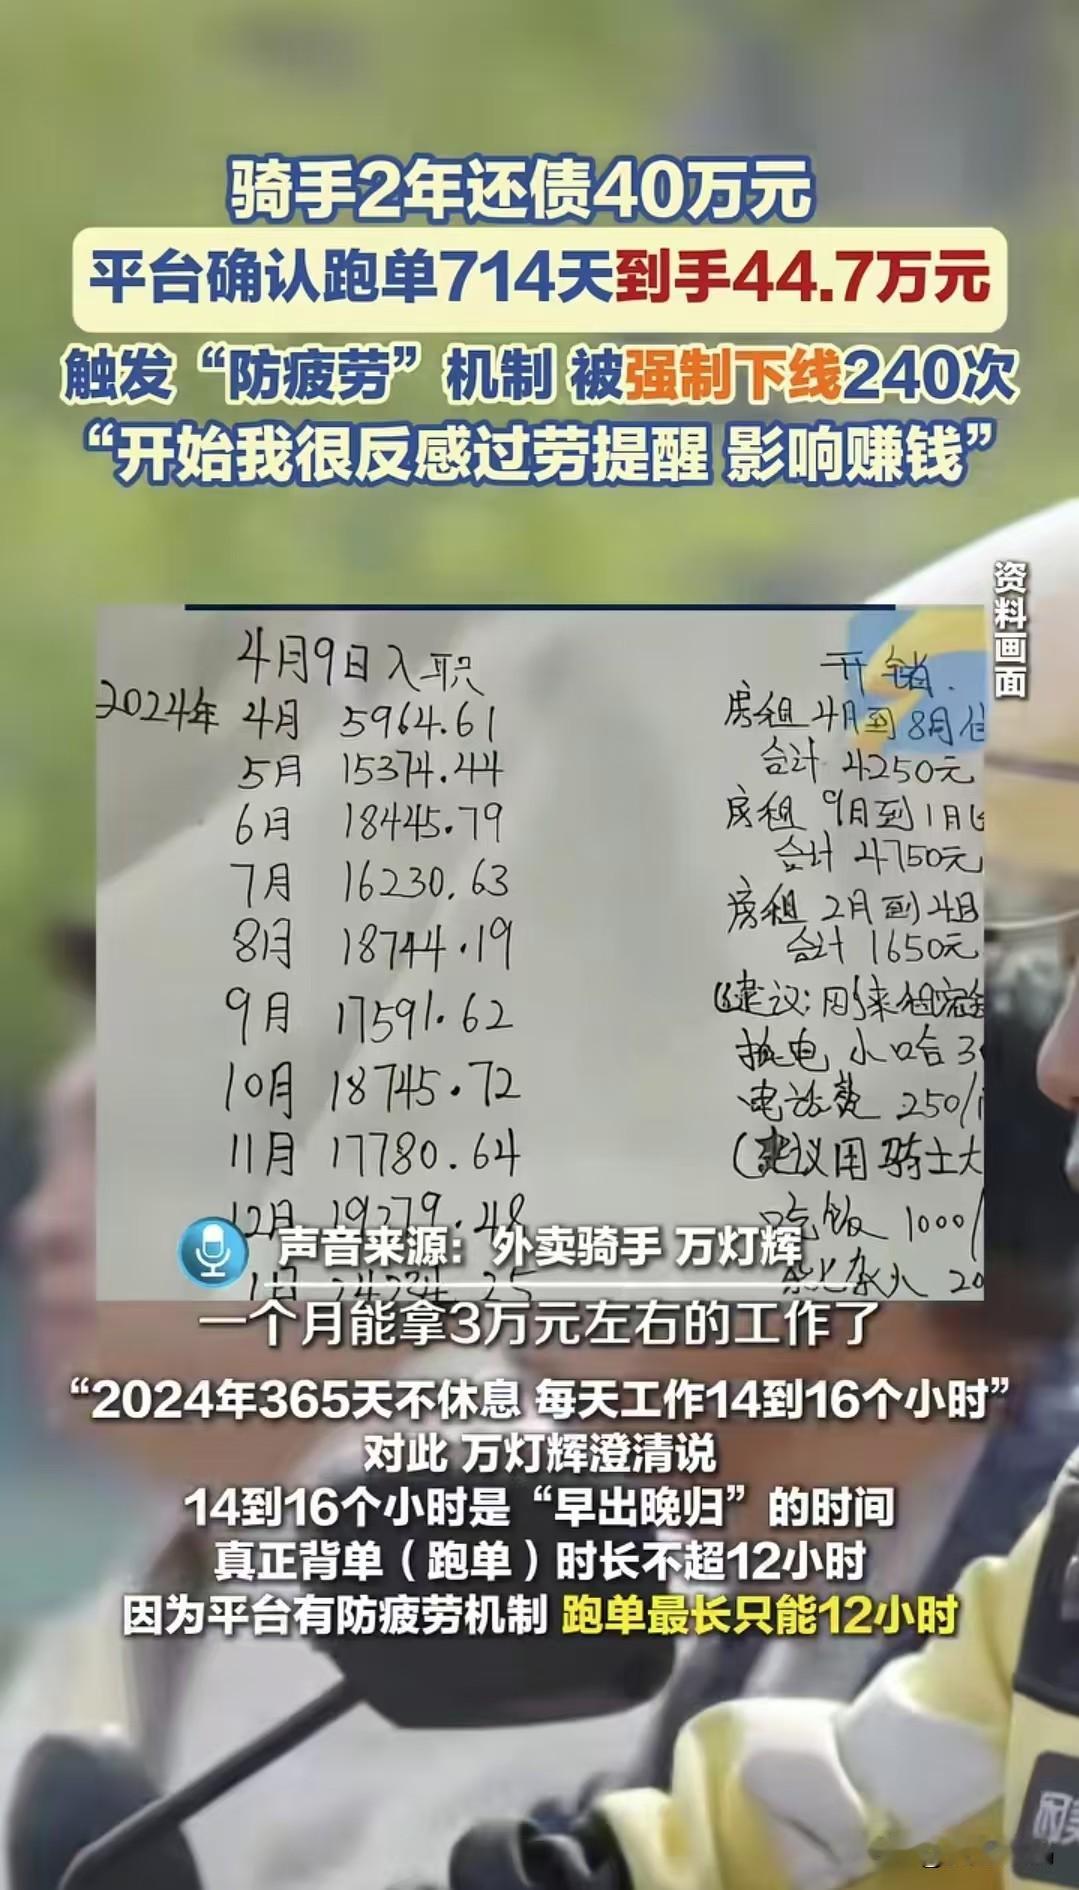 骑手2年还债40万元
平台确认跑单714天到手44.7万元
触发“防疲劳”机制 被强制下线240次
“开始我很反感过劳提醒 影响赚钱”
资料画面
4月9日入职
2024年 4月 5964.61
5月 15374.44
6月 18445.79
7月 16230.63
8月 18744.19
9月 17591.62
10月 18745.72
11月 17780.64
12月 19279.48
1月
开销.
房租 4月到8月
合计 4250元
房租 9月到1月
合计 4750元
房租 2月到4月
合计 1650元
(建议:用来租
换电 小哈 3
电话费 250/
(建议用 骑士大
吃饭 1000/
20
声音来源：外卖骑手 万灯辉
一个月能拿3万元左右的工作了
“2024年365天不休息 每天工作14到16个小时”
对此 万灯辉澄清说
14到16个小时是“早出晚归”的时间
真正背单（跑单）时长不超12小时
因为平台有防疲劳机制 跑单最长只能12小时